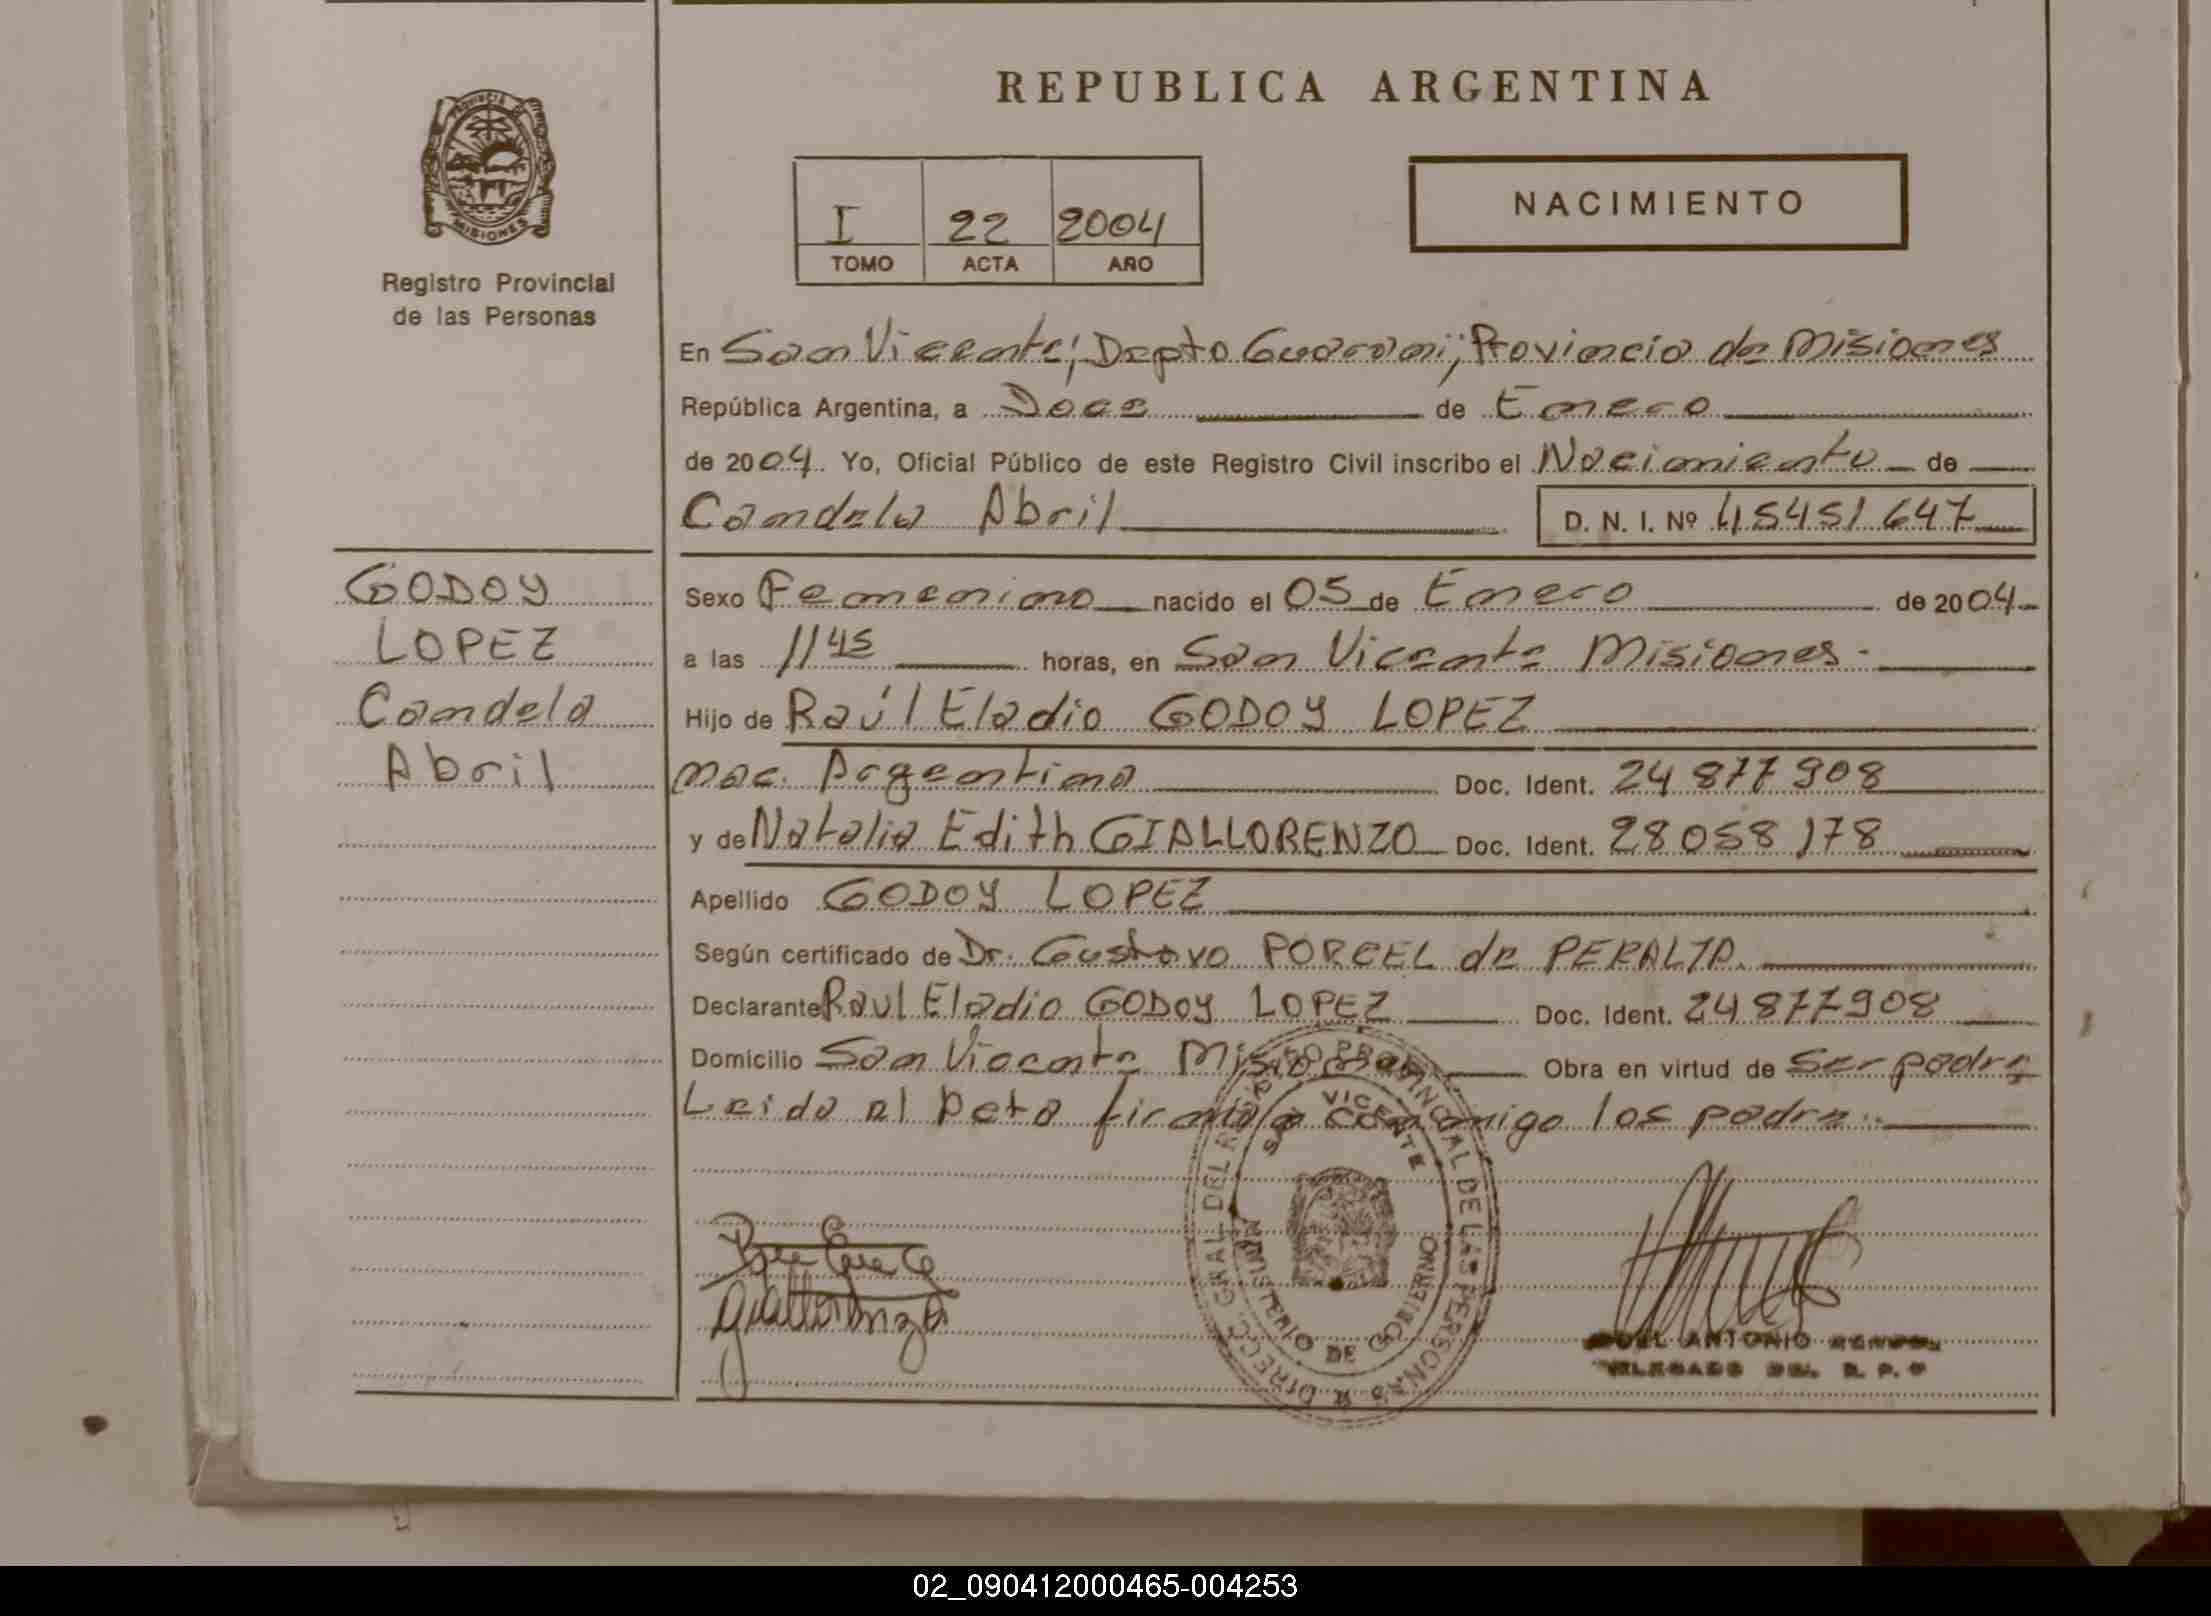 REPUBLICA ARGENTINA
PROVINCIA DE
MISIONES
Registro Provincial
de las Personas
I 22 2004
TOMO ACTA AÑO
NACIMIENTO
En San Vicente; Depto Guarani; Provincia de Misiones
República Argentina, a Doce de Enero
de 2004. Yo, Oficial Público de este Registro Civil inscribo el Nacimiento de
Candela Abril D. N. I. Nº 45451647
GODOY
LOPEZ
Candela
Abril
Sexo Femenino nacido el 05 de Enero de 2004
a las 11 45 horas, en San Vicente Misiones.
Hijo de Raúl Eladio GODOY LOPEZ
nac. Argentina Doc. Ident. 24 877 908
y de Natalia Edith GIALLORENZO Doc. Ident. 28 058 178
Apellido GODOY LOPEZ
Según certificado de Dr. Gustavo PORCEL de PERALTA.
Declarante Raul Eladio GODOY LOPEZ Doc. Ident. 24 877 908
Domicilio San Vicente Misiones Obra en virtud de Ser padre
Leido el Acta firmala conmigo los padre..
DIRECC. GRAL. DEL REGISTRO PROVINCIAL DE LAS PERSONAS
SAN VICENTE
MINISTERIO DE GOBIERNO
Giallorenzo
ANTONIO
DELEGADO DEL R. P. P
02_090412000465-004253